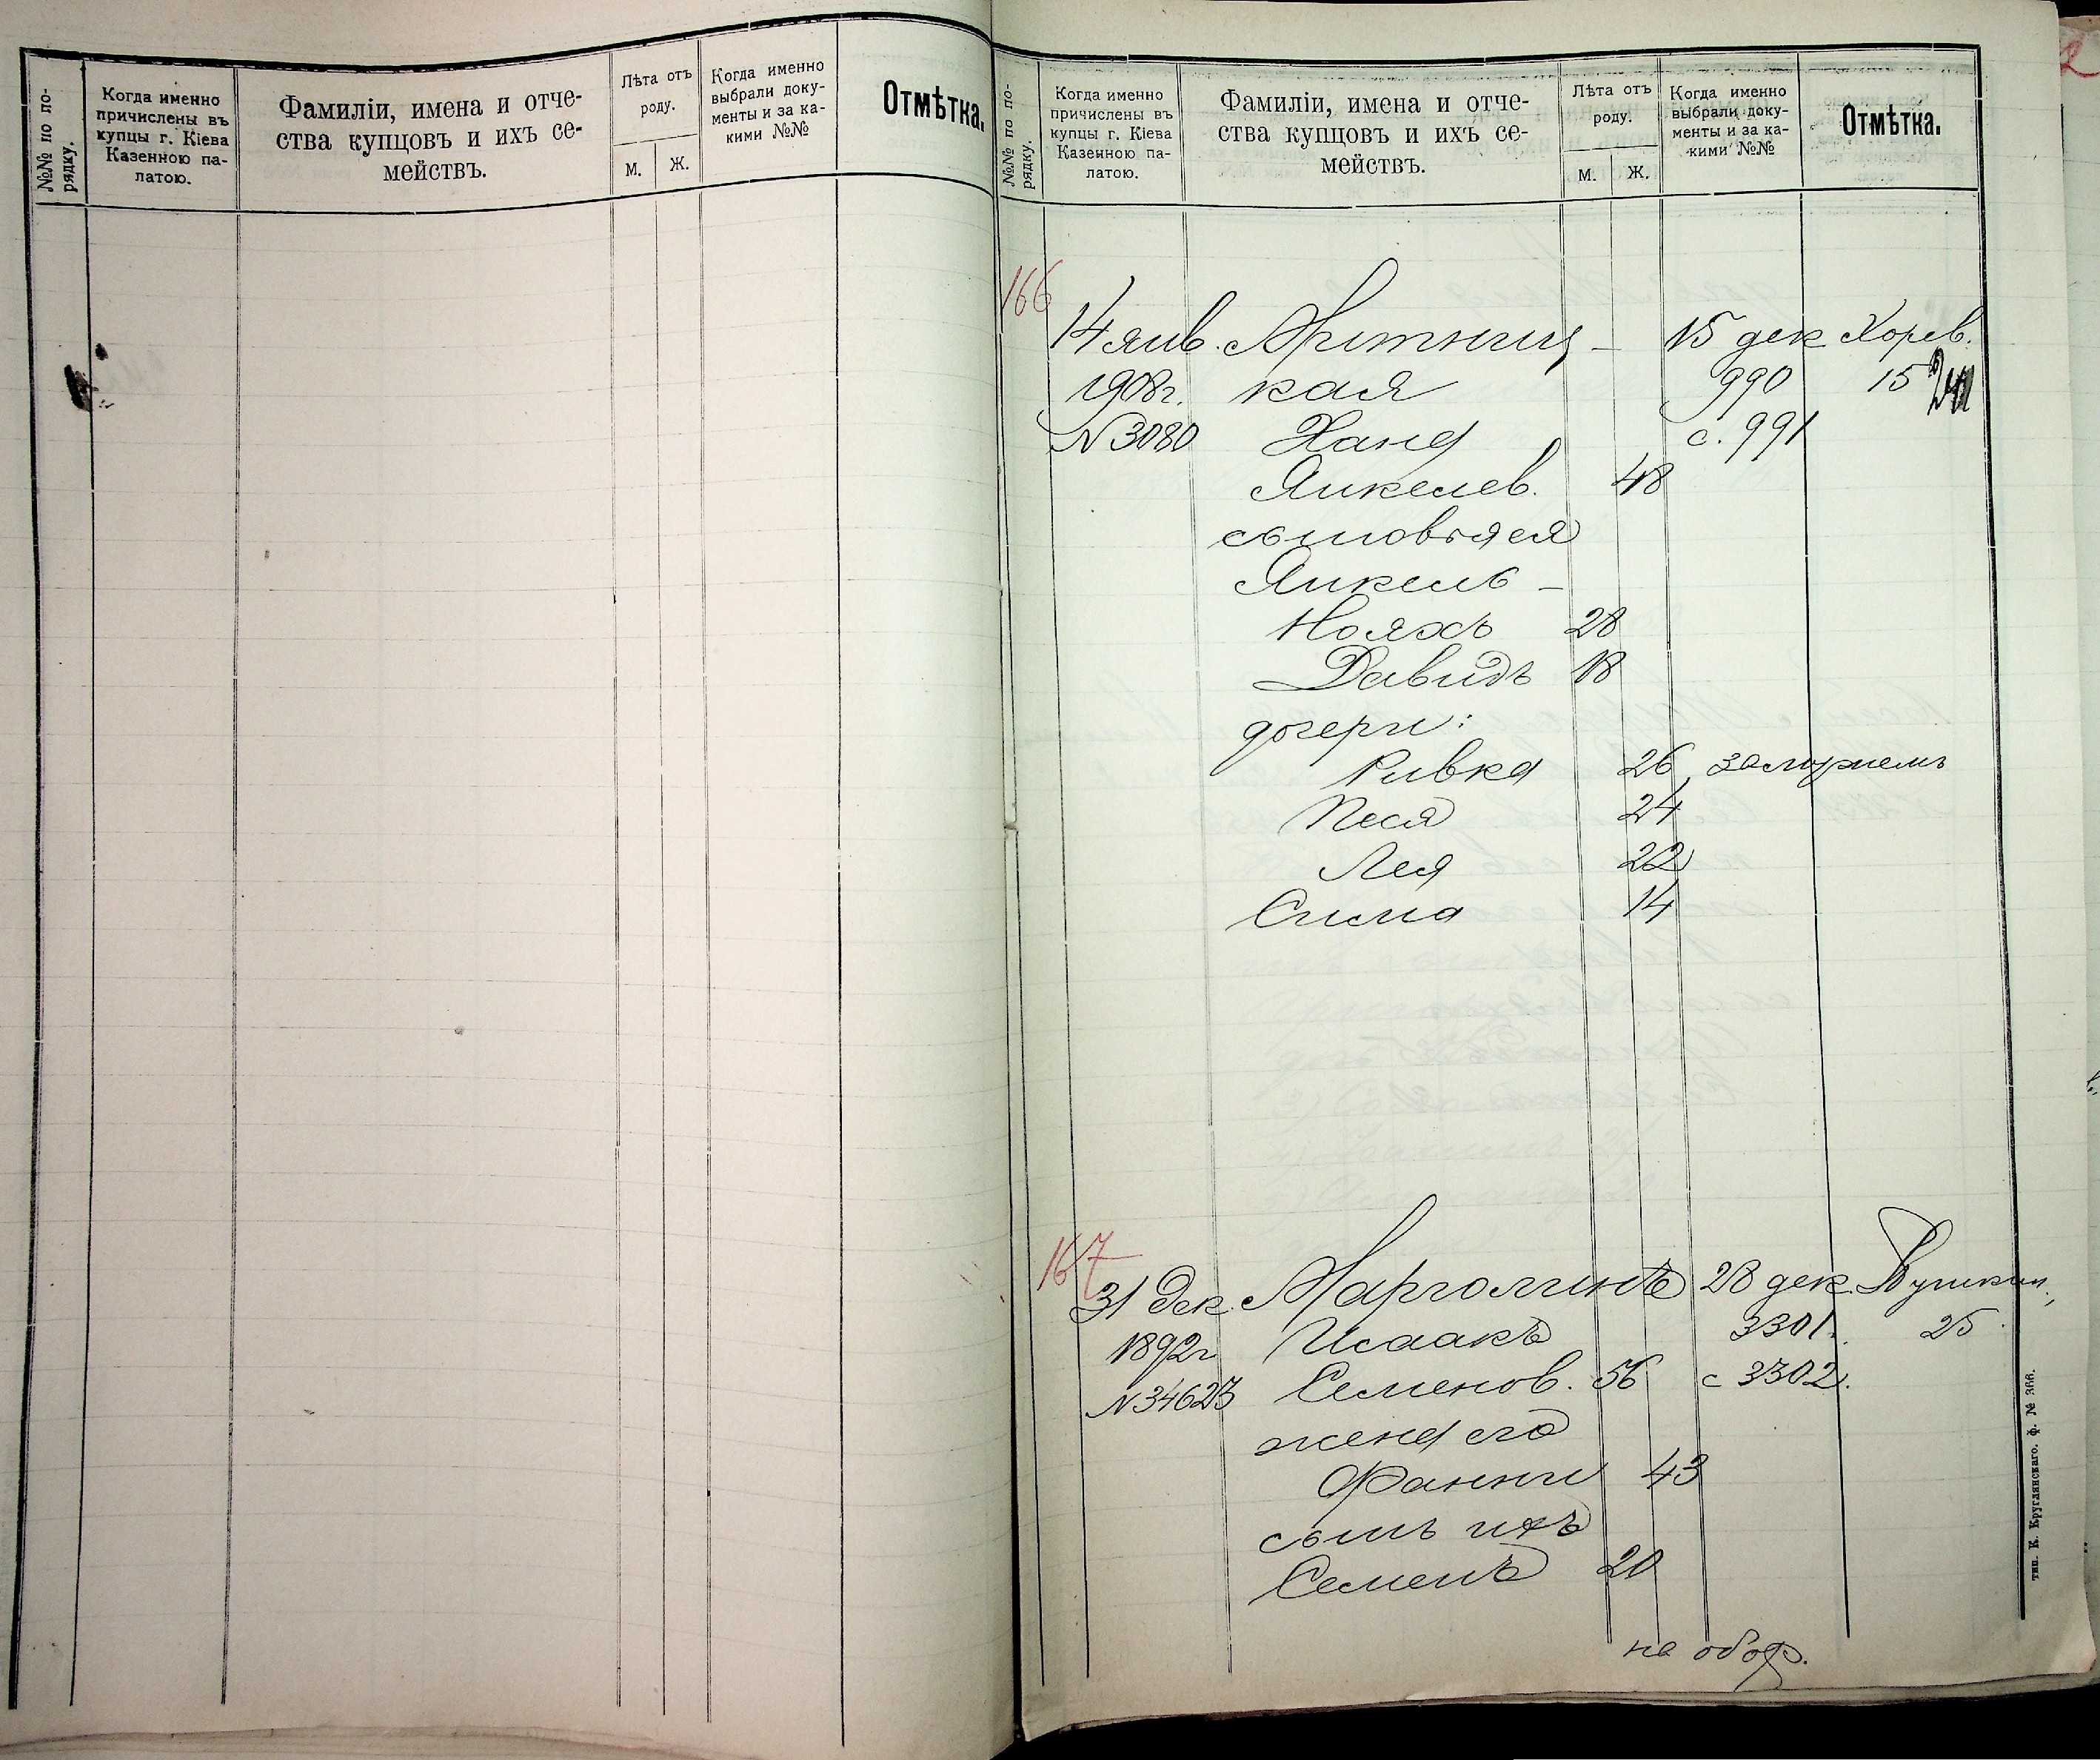 №№ по по-
рядку.
Когда именно
причислены въ
купцы г. Кіева
Казенною па-
латою.
Фамиліи, имена и отче-
ства купцовъ и ихъ се-
мействъ.
Лѣта отъ
роду.
М. Ж.
Когда именно
выбрали доку-
менты и за ка-
кими №№
Отмѣтка.
№№ по по-
рядку.
Когда именно
причислены въ
купцы г. Кіева
Казенною па-
латою.
Фамиліи, имена и отче-
ства купцовъ и ихъ се-
мействъ.
Лѣта отъ
роду.
М. Ж.
Когда именно
выбрали доку-
менты и за ка-
кими №№
Отмѣтка.
166
14 янв. 15 дек Хорев.
1908г. кая 990 15
№3080 Хана с. 991
Янкелев. 48
сыновья ея
Янкель -
Нояхъ 28
Давидъ 18
дочери:
Ривка 26 замужемъ
Песя 24
Лея 22
Сима 14
167
31 дек. Марголинъ 28 дек. Пушкин.
1892г Исаакъ 3301. 25.
№34623 Семенов. 56 с 3302.
жена его
Фанни 43
сынъ ихъ
Семенъ 20
на обор.
тип. К. Круглянскаго. ф. № 366.